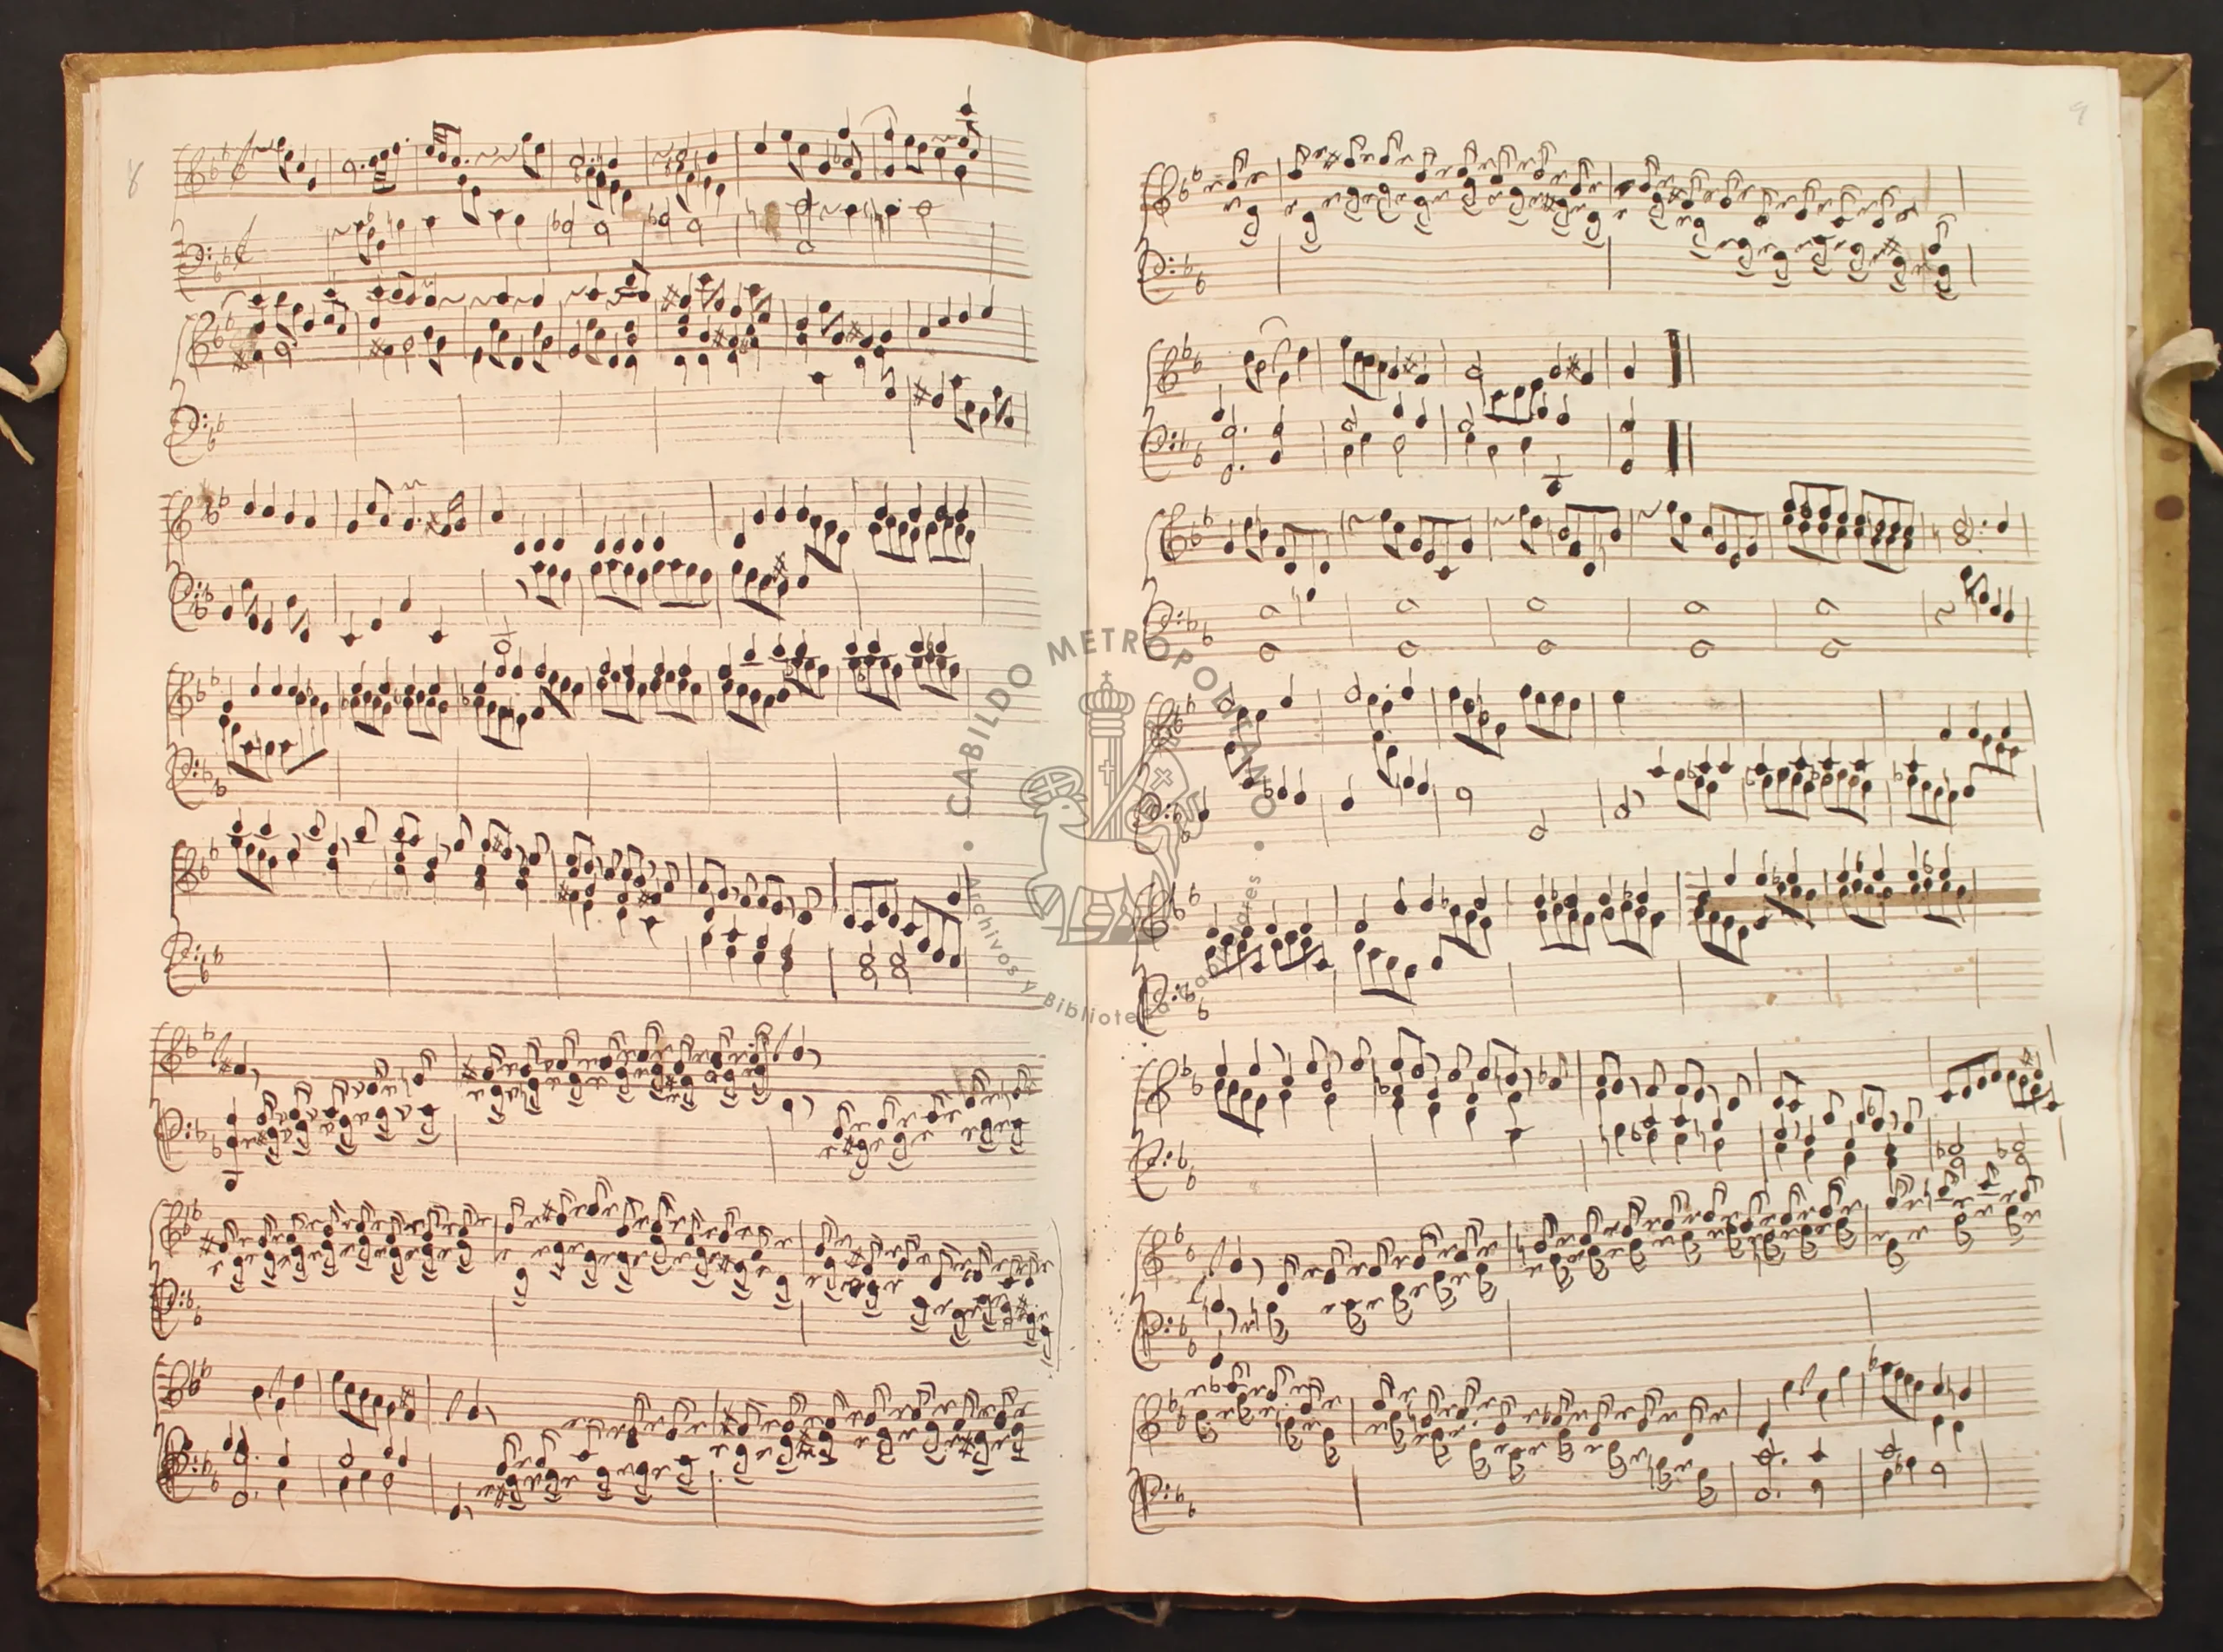 8
9
CABILDO METROPOLITANO
Archivos y Biblioteca Capitulares